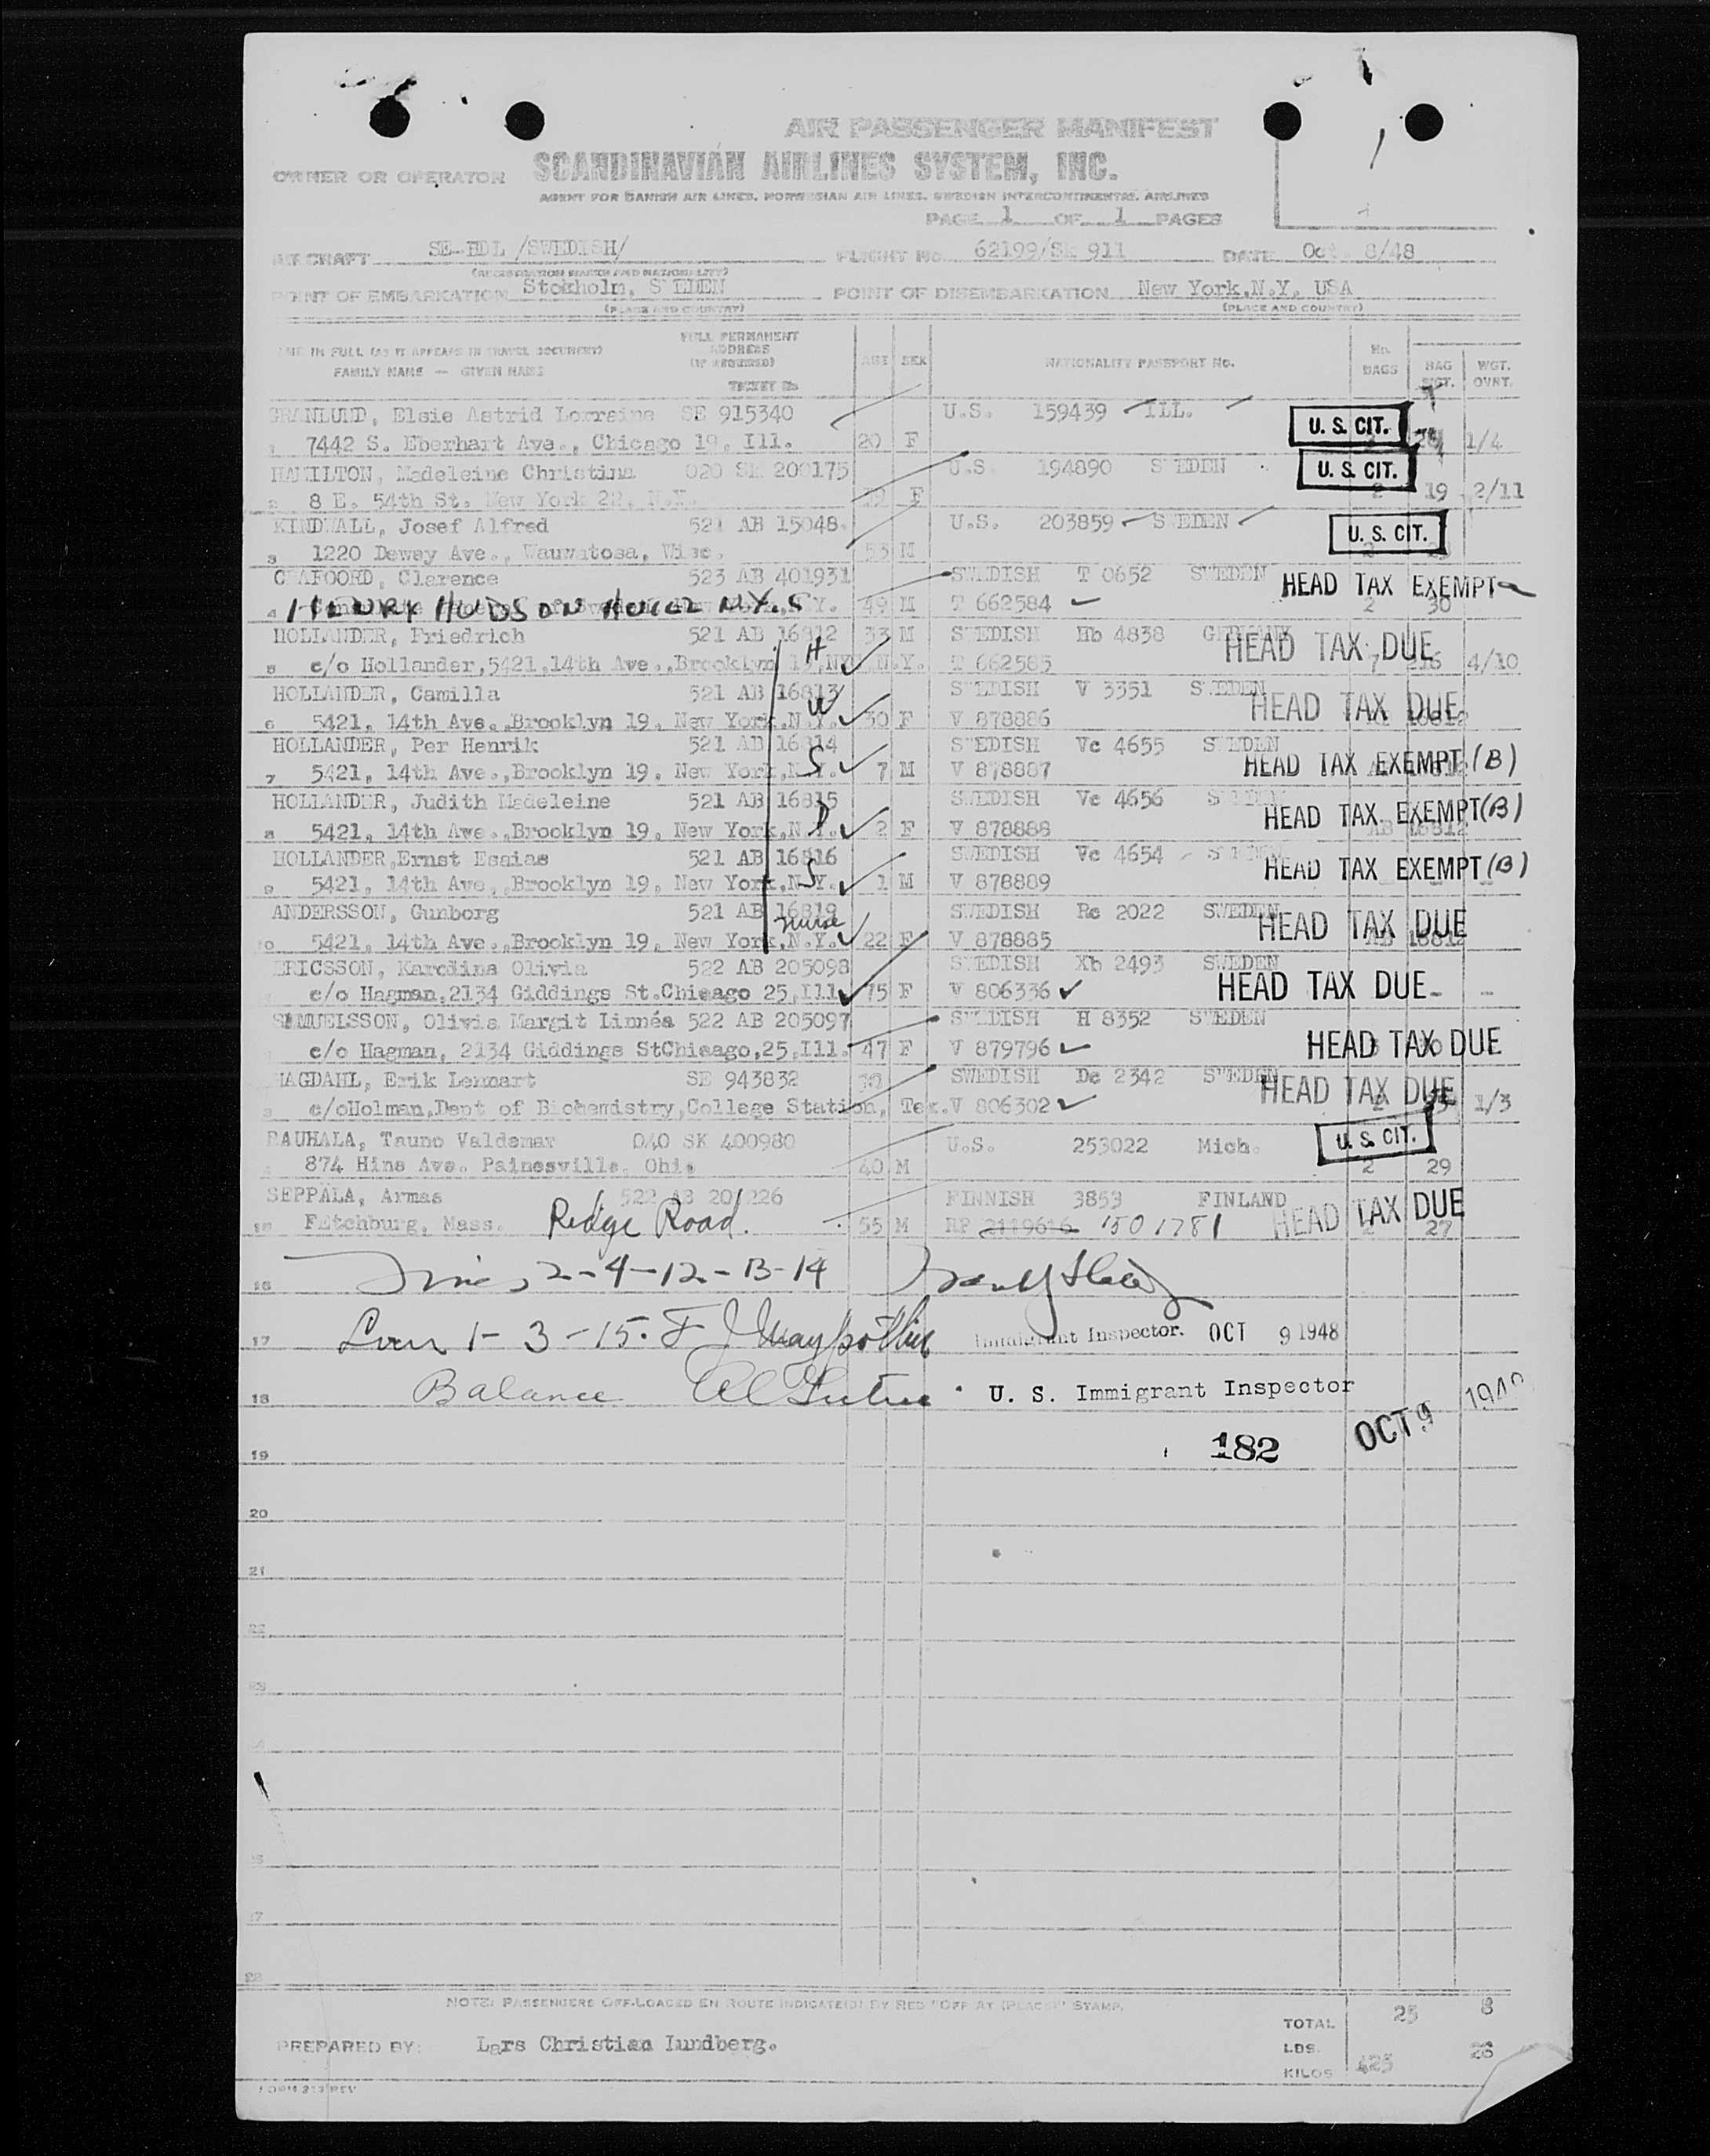 AIR PASSENGER MANIFEST
OWNER OR OPERATOR SCANDINAVIAN AIRLINES SYSTEM, INC.
AGENT FOR DANISH AIR LINES, NORWEGIAN AIR LINES, SWEDISH INTERCONTINENTAL AIRLINES
PAGE 1 OF 1 PAGES
AIRCRAFT SE-BDL /SWEDISH/ FLIGHT No. 62199/SK 911 DATE Oct. 8/48
(REGISTRATION MARKS AND NATIONALITY)
POINT OF EMBARKATION Stokholm, SWEDEN POINT OF DISEMBARKATION New York,N.Y. USA
(PLACE AND COUNTRY) (PLACE AND COUNTRY)
NAME IN FULL (AS IT APPEARS IN TRAVEL DOCUMENT) FULL PERMANENT ADDRESS (IF REQUIRED) AGE SEX NATIONALITY PASSPORT No. No. BAGS BAG WGT. WGT. OVWT.
FAMILY NAME — GIVEN NAME TICKET No
GRANLUND, Elsie Astrid Lorraine SE 915340 U.S. 159439 ILL. U. S. CIT.
1 7442 S. Eberhart Ave., Chicago 19, Ill. 20 F 1/4
HAMILTON, Madeleine Christina 020 SK 200175 U.S. 194890 SWEDEN U. S. CIT.
2 8 E. 54th St. New York 22, N.Y. F 2 19 2/11
KINDWALL, Josef Alfred 521 AB 15048 U.S. 203859 SWEDEN U. S. CIT.
3 1220 Dewey Ave., Wauwatosa, Wisc. 53 M
CRAFOORD, Clarence 523 AB 401931 SWEDISH T 0652 SWEDEN HEAD TAX EXEMPT
4 HENRY HUDSON HOTEL N.Y.S 49 M T 662584 2 30
HOLLANDER, Friedrich 521 AB 16812 33 M SWEDISH Hb 4838 GERMANY HEAD TAX DUE
5 c/o Hollander,5421,14th Ave.,Brooklyn 19,NY N.Y. H T 662585 7 216 4/10
HOLLANDER, Camilla 521 AB 16813 SWEDISH V 3351 SWEDEN HEAD TAX DUE
6 5421, 14th Ave.,Brooklyn 19, New York,N.Y. W 30 F V 878886 AB 16812
HOLLANDER, Per Henrik 521 AB 16814 SWEDISH Vc 4655 SWEDEN
7 5421, 14th Ave.,Brooklyn 19, New York,N.Y. S 7 M V 878887 HEAD TAX EXEMPT (B)
HOLLANDER, Judith Madeleine 521 AB 16815 SWEDISH Vc 4656 SWEDEN HEAD TAX EXEMPT (B)
8 5421, 14th Ave.,Brooklyn 19, New York,N.Y. D 2 F V 878888 AB 16812
HOLLANDER,Ernst Esaias 521 AB 16816 SWEDISH Vc 4654 SWEDEN HEAD TAX EXEMPT (B)
9 5421, 14th Ave.,Brooklyn 19, New York,N.Y. S 1 M V 878889
ANDERSSON, Gunborg 521 AB 16819 SWEDISH Rc 2022 SWEDEN HEAD TAX DUE
10 5421, 14th Ave.,Brooklyn 19, New York,N.Y. nurse 22 F V 878885 AB 16812
ERICSSON, Karolina Olivia 522 AB 205098 SWEDISH Xb 2493 SWEDEN
c/o Hagman,2134 Giddings St.Chicago 25,Ill. 75 F V 806336 HEAD TAX DUE
SAMUELSSON, Olivia Margit Linnéa 522 AB 205097 SWEDISH H 8352 SWEDEN
c/o Hagman, 2134 Giddings StChicago,25,Ill. 47 F V 879796 HEAD TAX DUE
HAGDAHL, Erik Lennart SE 943832 30 SWEDISH Dc 2342 SWEDEN HEAD TAX DUE
c/oHolman,Dept of Biochemistry,College Station, Tex. V 806302 2 1/3
RAUHALA, Tauno Valdemar 040 SK 400980 U.S. 253022 Mich. U. S. CIT.
874 Hine Ave. Painesville, Ohio 40 M 2 29
SEPPÄLÄ, Armas 522 AB 201226 FINNISH 3853 FINLAND HEAD TAX DUE
15 Fitchburg, Mass. Ridge Road. 55 M RP 2119616 1501781 2 27
16 Lines 2-4-12-13-14
17 Lines 1-3-15. Immigrant Inspector. OCT 9 1948
18 Balance U. S. Immigrant Inspector OCT 9 1948
182
19
20
21
22
23
27
28
NOTE: PASSENGERS OFF-LOADED EN ROUTE INDICATE(D) BY RED "OFF AT (PLACE)" STAMP.
TOTAL 25 8
PREPARED BY: Lars Christian Lundberg.
LBS. 26
KILOS 423
FORM 213 REV